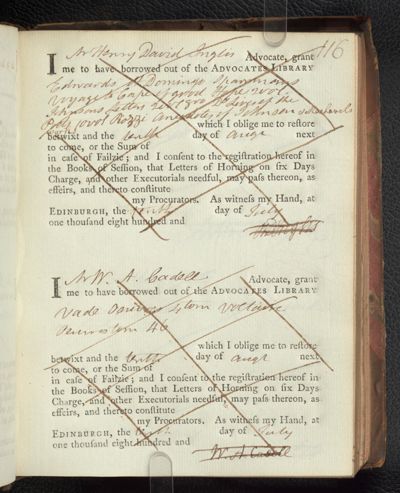 116
I Mr Henry David Inglis Advocate, grant
me to have borrowed out of the ADVOCATES LIBRARY
Edwards St Domingo
Voyage to Cape of good Hope
Letters
Anecdotes of
which I oblige me to reſtore
betwixt and the tenth day of Augt next
to come, or the Sum of
in caſe of Failzie; and I conſent to the regiſtration hereof in
the Books of Seſſion, that Letters of Horning on ſix Days
Charge, and other Executorials needful, may paſs thereon, as
effeirs, and thereto conſtitute
my Procurators. As witneſs my Hand, at
EDINBURGH, the tenth day of July
one thouſand eight hundred and
I Mr W. A. Cadell Advocate, grant
me to have borrowed out of the ADVOCATES LIBRARY
4 tom Voltaire
tom 40
which I oblige me to reſtore
betwixt and the tenth day of Augt next
to come, or the Sum of
in caſe of Failzie; and I conſent to the regiſtration hereof in
the Books of Seſſion, that Letters of Horning on ſix Days
Charge, and other Executorials needful, may paſs thereon, as
effeirs, and thereto conſtitute
my Procurators. As witneſs my Hand, at
EDINBURGH, the tenth day of July
one thouſand eight hundred and
W. A. Cadell